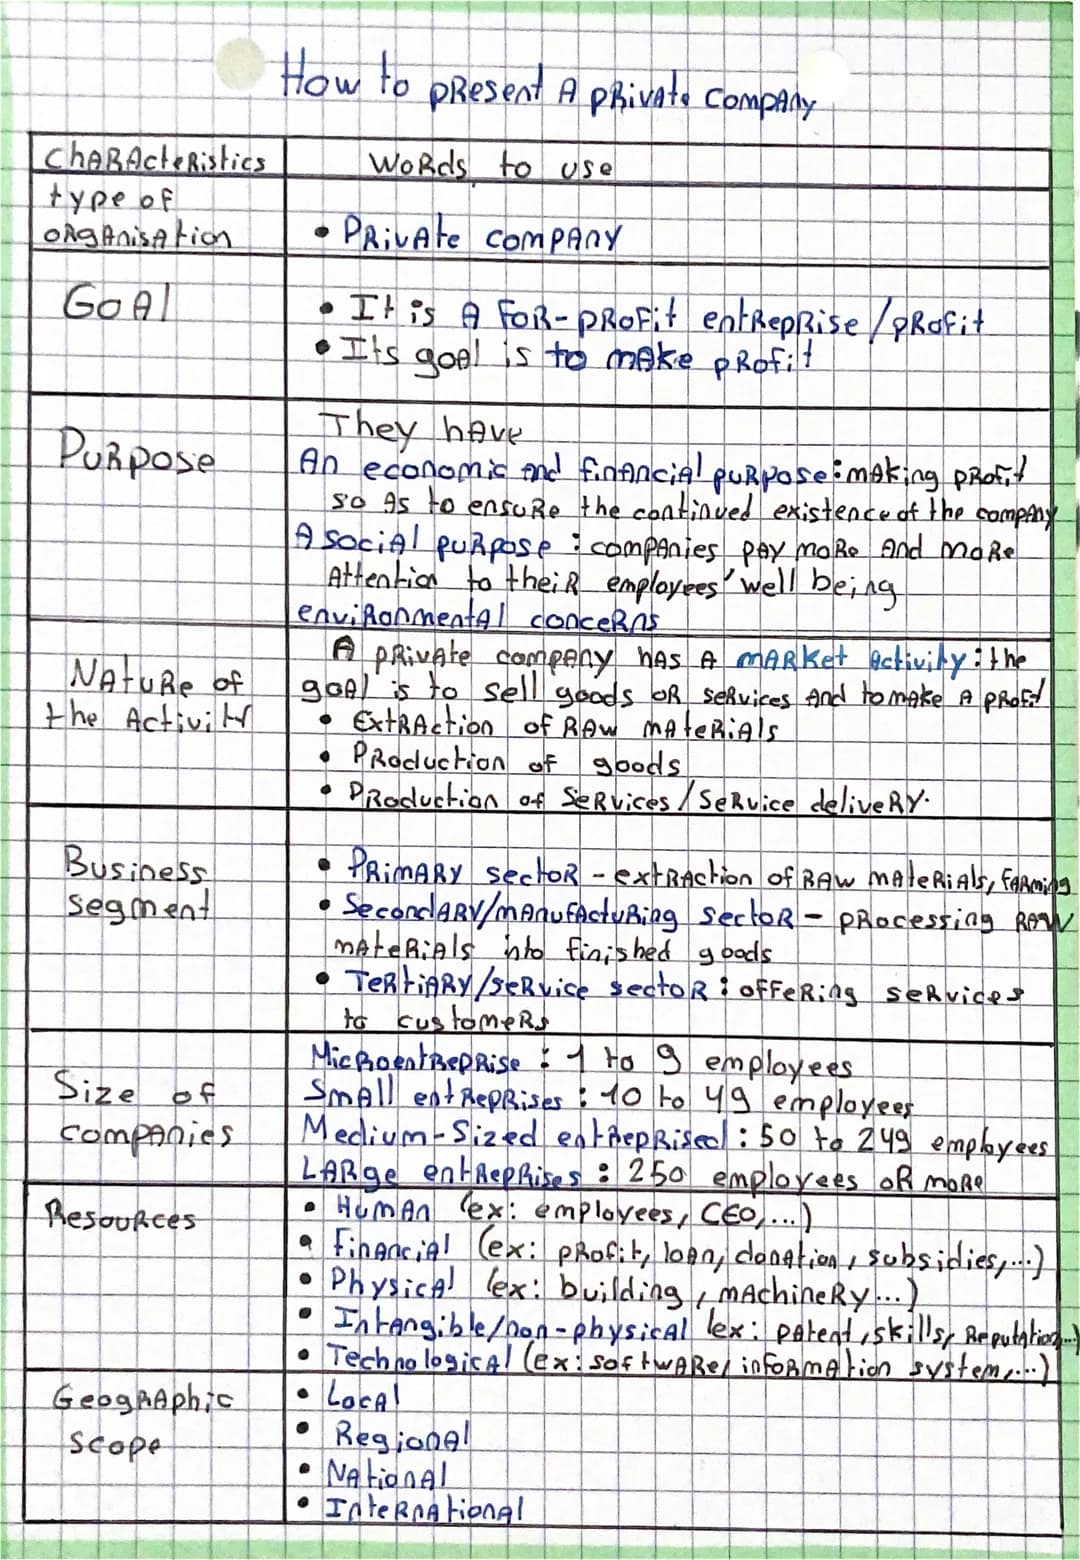 How to present a private company
characteristics
words to use
type of
organisation
• Private company
Goal
• It is a for-profit entreprise/profit
• Its goal is to make profit
Purpose
They have
An economic and financial purpose: making profit
so as to ensure the continued existence of the company
A social purpose: companies pay more and more
Attention to their employees' well being
environmental concerns
Nature of
the Activity
A private company has a market activity: the
goal is to sell goods or services and to make a profit
• Extraction of raw materials
• Production of goods
• Production of services/service delivery.
Business
segment
• Primary sector - extraction of raw materials, farming
• Secondary/manufacturing sector - processing raw
materials into finished goods
• Tertiary/service sector: offering services
to customers
Size of
companies
Microentreprise: 1 to 9 employees
Small entreprises: 10 to 49 employees
Medium-Sized entreprised: 50 to 249 employees
Large entreprises: 250 employees or more
Resources
• Human (ex: employees, CEO,...)
• Financial (ex: profit, loan, donation, subsidies,...)
• Physical (ex: building, machinery...)
• Intangible/non-physical (ex: patent, skills, Reputation...)
• Technological (ex: software, information system,...)
Geographic
scope
• Local
• Regional
• National
• International